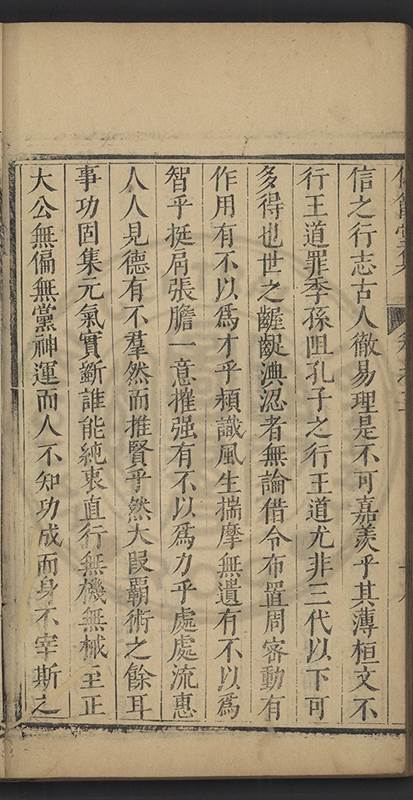 信之行志古人徹易理是不可嘉羨乎其薄桓文不
行王道罪季孫阻孔子之行王道尤非三代以下可
多得也世之齷齪淟涊者無論借令布置周密動有
作用有不以為才乎頼識風生揣摩無遺有不以為
智乎挺肩張膽一意摧强有不以為力乎處處流惠
人人見德有不羣然而推賢乎然大叚覇術之餘耳
事功固集元氣實斲誰能純衷直行無機無械至正
大公無偏無黨神運而人不知功成而身不宰斯之